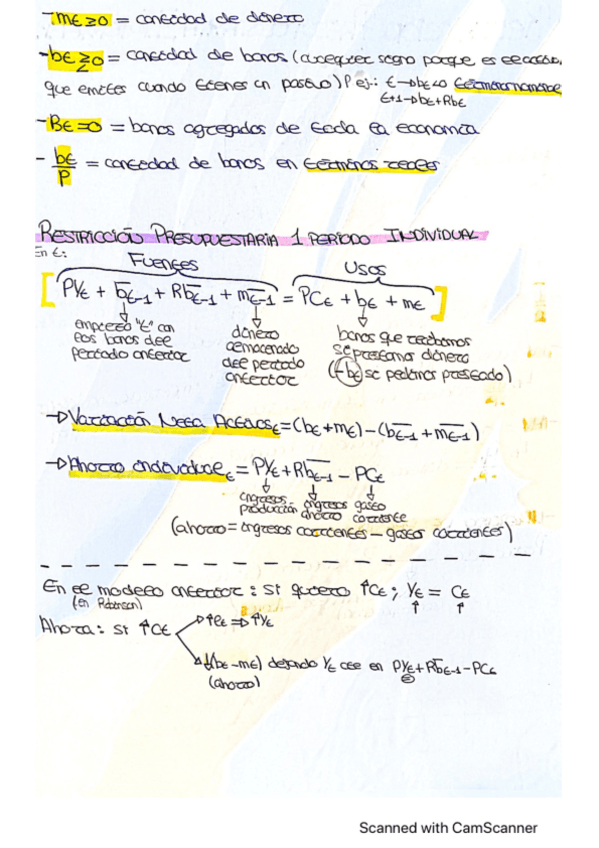 - mt ≥0 = cantidad de dinero
- bt ≥≤ 0 = cantidad de bonos (cualquier signo porque es el crédito,
que emites cuando tienes un pasivo) P ej.: t→bt<0 términos nominales
t+1→bt+Rbt
- Bt=0 = bonos agregados de toda la economía
- bt/P = cantidad de bonos en términos reales
RESTRICCIÓN PRESUPUESTARIA 1 PERIODO INDIVIDUAL
En t:
Fuentes Usos
[ PYt + bt-1 + Rbt-1 + mt-1 = PCt + bt + mt ]
empiezo "t" con los bonos del periodo anterior
dinero almacenado del periodo anterior
bonos que recibimos si prestamos dinero (-bt si pedimos prestado)
→ Variación Neta Activos t = (bt+mt) - (bt-1 + mt-1)
→ Ahorro individual t = PYt + Rbt-1 - PCt
ingresos producción ingresos ahorro gasto corriente
(ahorro = ingresos corrientes - gastos corrientes)
En el modelo anterior : si quiero ↑Ct ; Yt = Ct
(en Robinson) ↑ ↑
Ahora : si ↑Ct
→ ↑Ct ⇒ ↑Yt
↓(bt-mt) dejando Yt cte en PYt + Rbt-1 - PCt
(ahorro)
Scanned with CamScanner